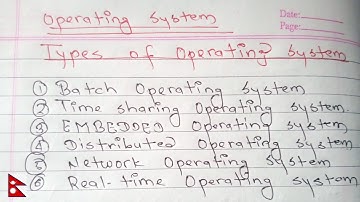 Operating System
Date:
Page:
Types of Operating System
① Batch Operating System
② Time sharing Operating System
③ EMBEDDED Operating System
④ Distributed Operating System
⑤ Network Operating System
⑥ Real-time Operating System